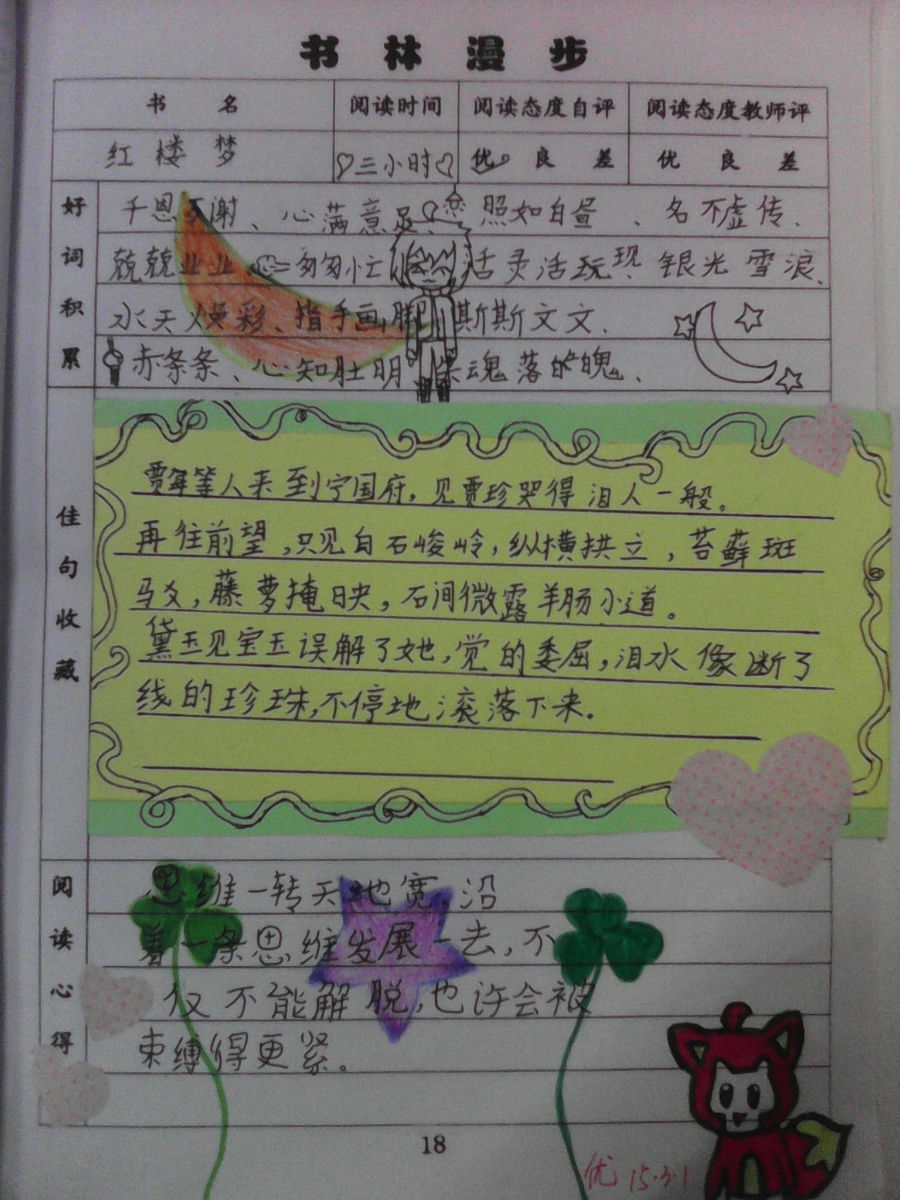 书林漫步
书名 阅读时间 阅读态度自评 阅读态度教师评
红楼梦 三小时 优 良 差 优 良 差
好词积累
千恩不谢、心满意足、照如白昼、名不虚传、
兢兢业业 匆匆忙 活灵活现 银光雪浪、
水天焕彩、指手画脚 斯斯文文、
赤条条、心知肚明 失魂落魄、
佳句收藏
贾等人来到宁国府，见贾珍哭得泪人一般。
再往前望，只见白石峻岭，纵横拱立，苔藓斑
驳，藤萝掩映，石间微露羊肠小道。
黛玉见宝玉误解了她，觉的委屈，泪水像断了
线的珍珠，不停地滚落下来。
阅读心得
思维一转天地宽，沿
着一条思维发展一去，不
仅不能解脱，也许会被
束缚得更紧。
18
优 15.3.1